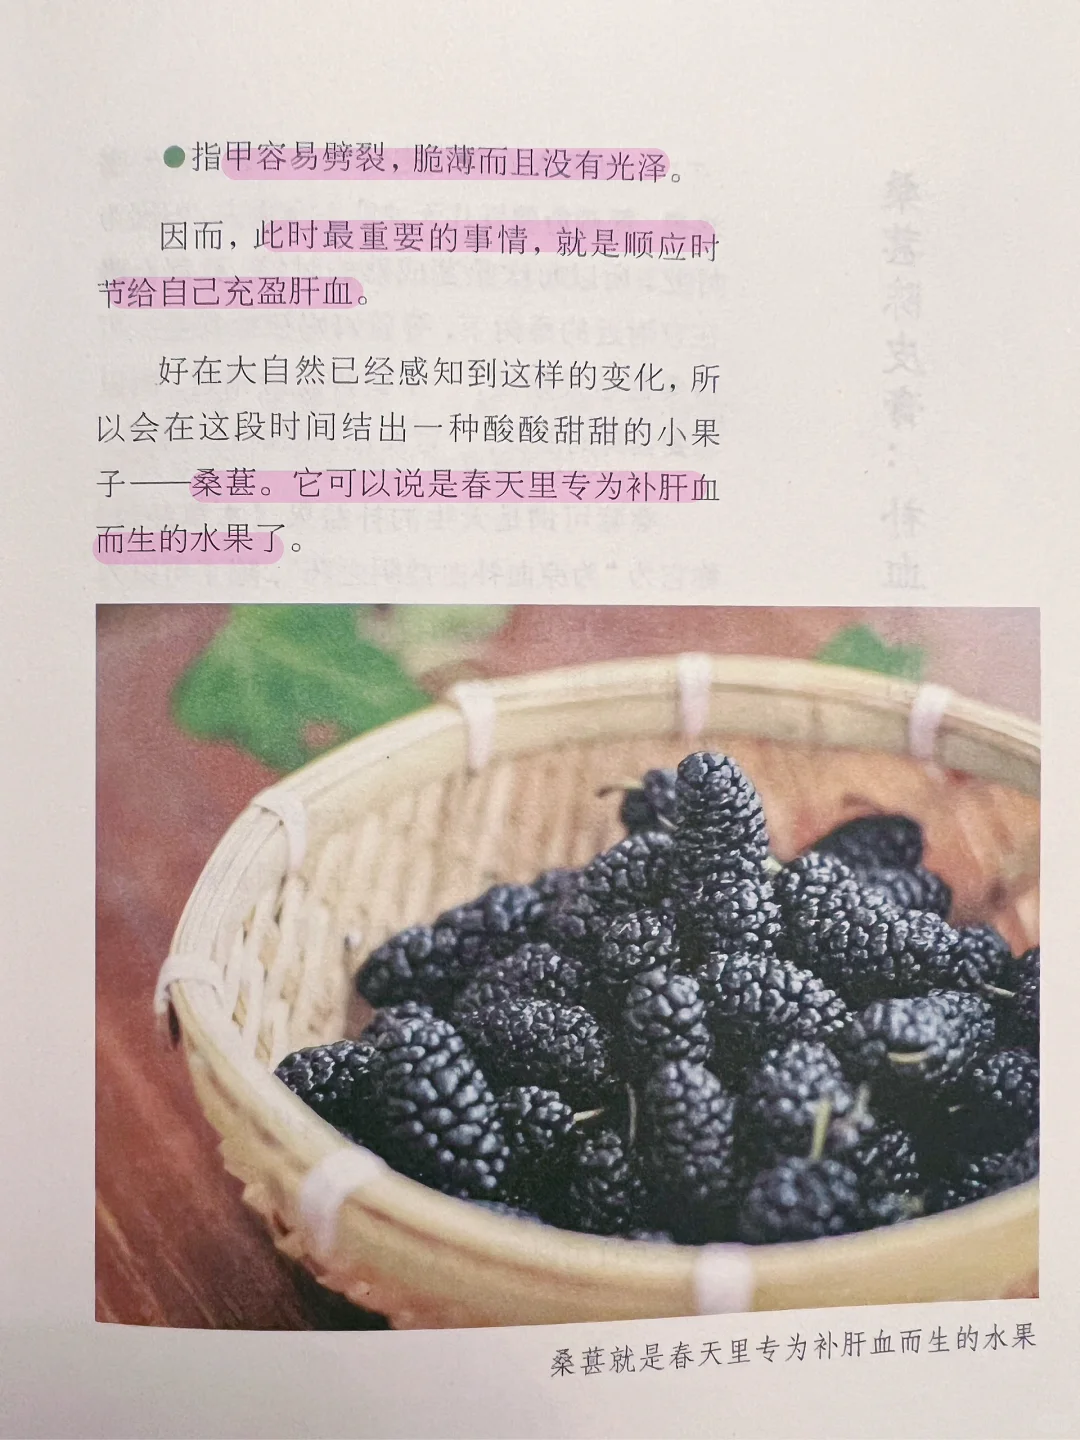 ●指甲容易劈裂，脆薄而且没有光泽。
因而，此时最重要的事情，就是顺应时
节给自己充盈肝血。
好在大自然已经感知到这样的变化，所
以会在这段时间结出一种酸酸甜甜的小果
子——桑葚。它可以说是春天里专为补肝血
而生的水果了。
桑葚就是春天里专为补肝血而生的水果